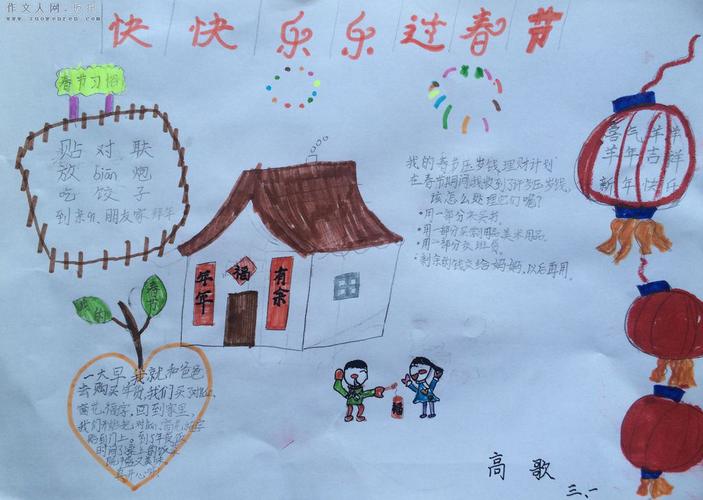 作文人网·版报
www.zuowenren.com
快快乐乐过春节
春节习惯
贴对联
放bian炮
吃饺子
到亲朋、朋友家拜年
春节
的
年年
福
有余
我的春节压岁钱理财计划
在春节期间我收到了许多压岁钱,
该怎么处理它们呢?
·用一部分来买书.
·用一部分买学习用品美术用品.
·用一部分交班费.
·剩余的钱交给妈妈,以后再用。
喜气羊羊
羊年吉祥
新年快乐
一大早,我就和爸爸
去购买年货,我们买了对联,
窗花,福字,回到家里,
我们开始把对联、窗花、福字
贴到门上。到了年夜饭
福
高歌
三、一